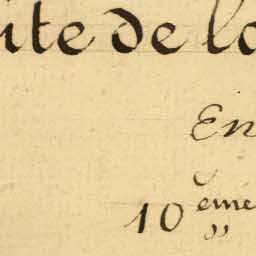 ite de la
En
10 eme
"